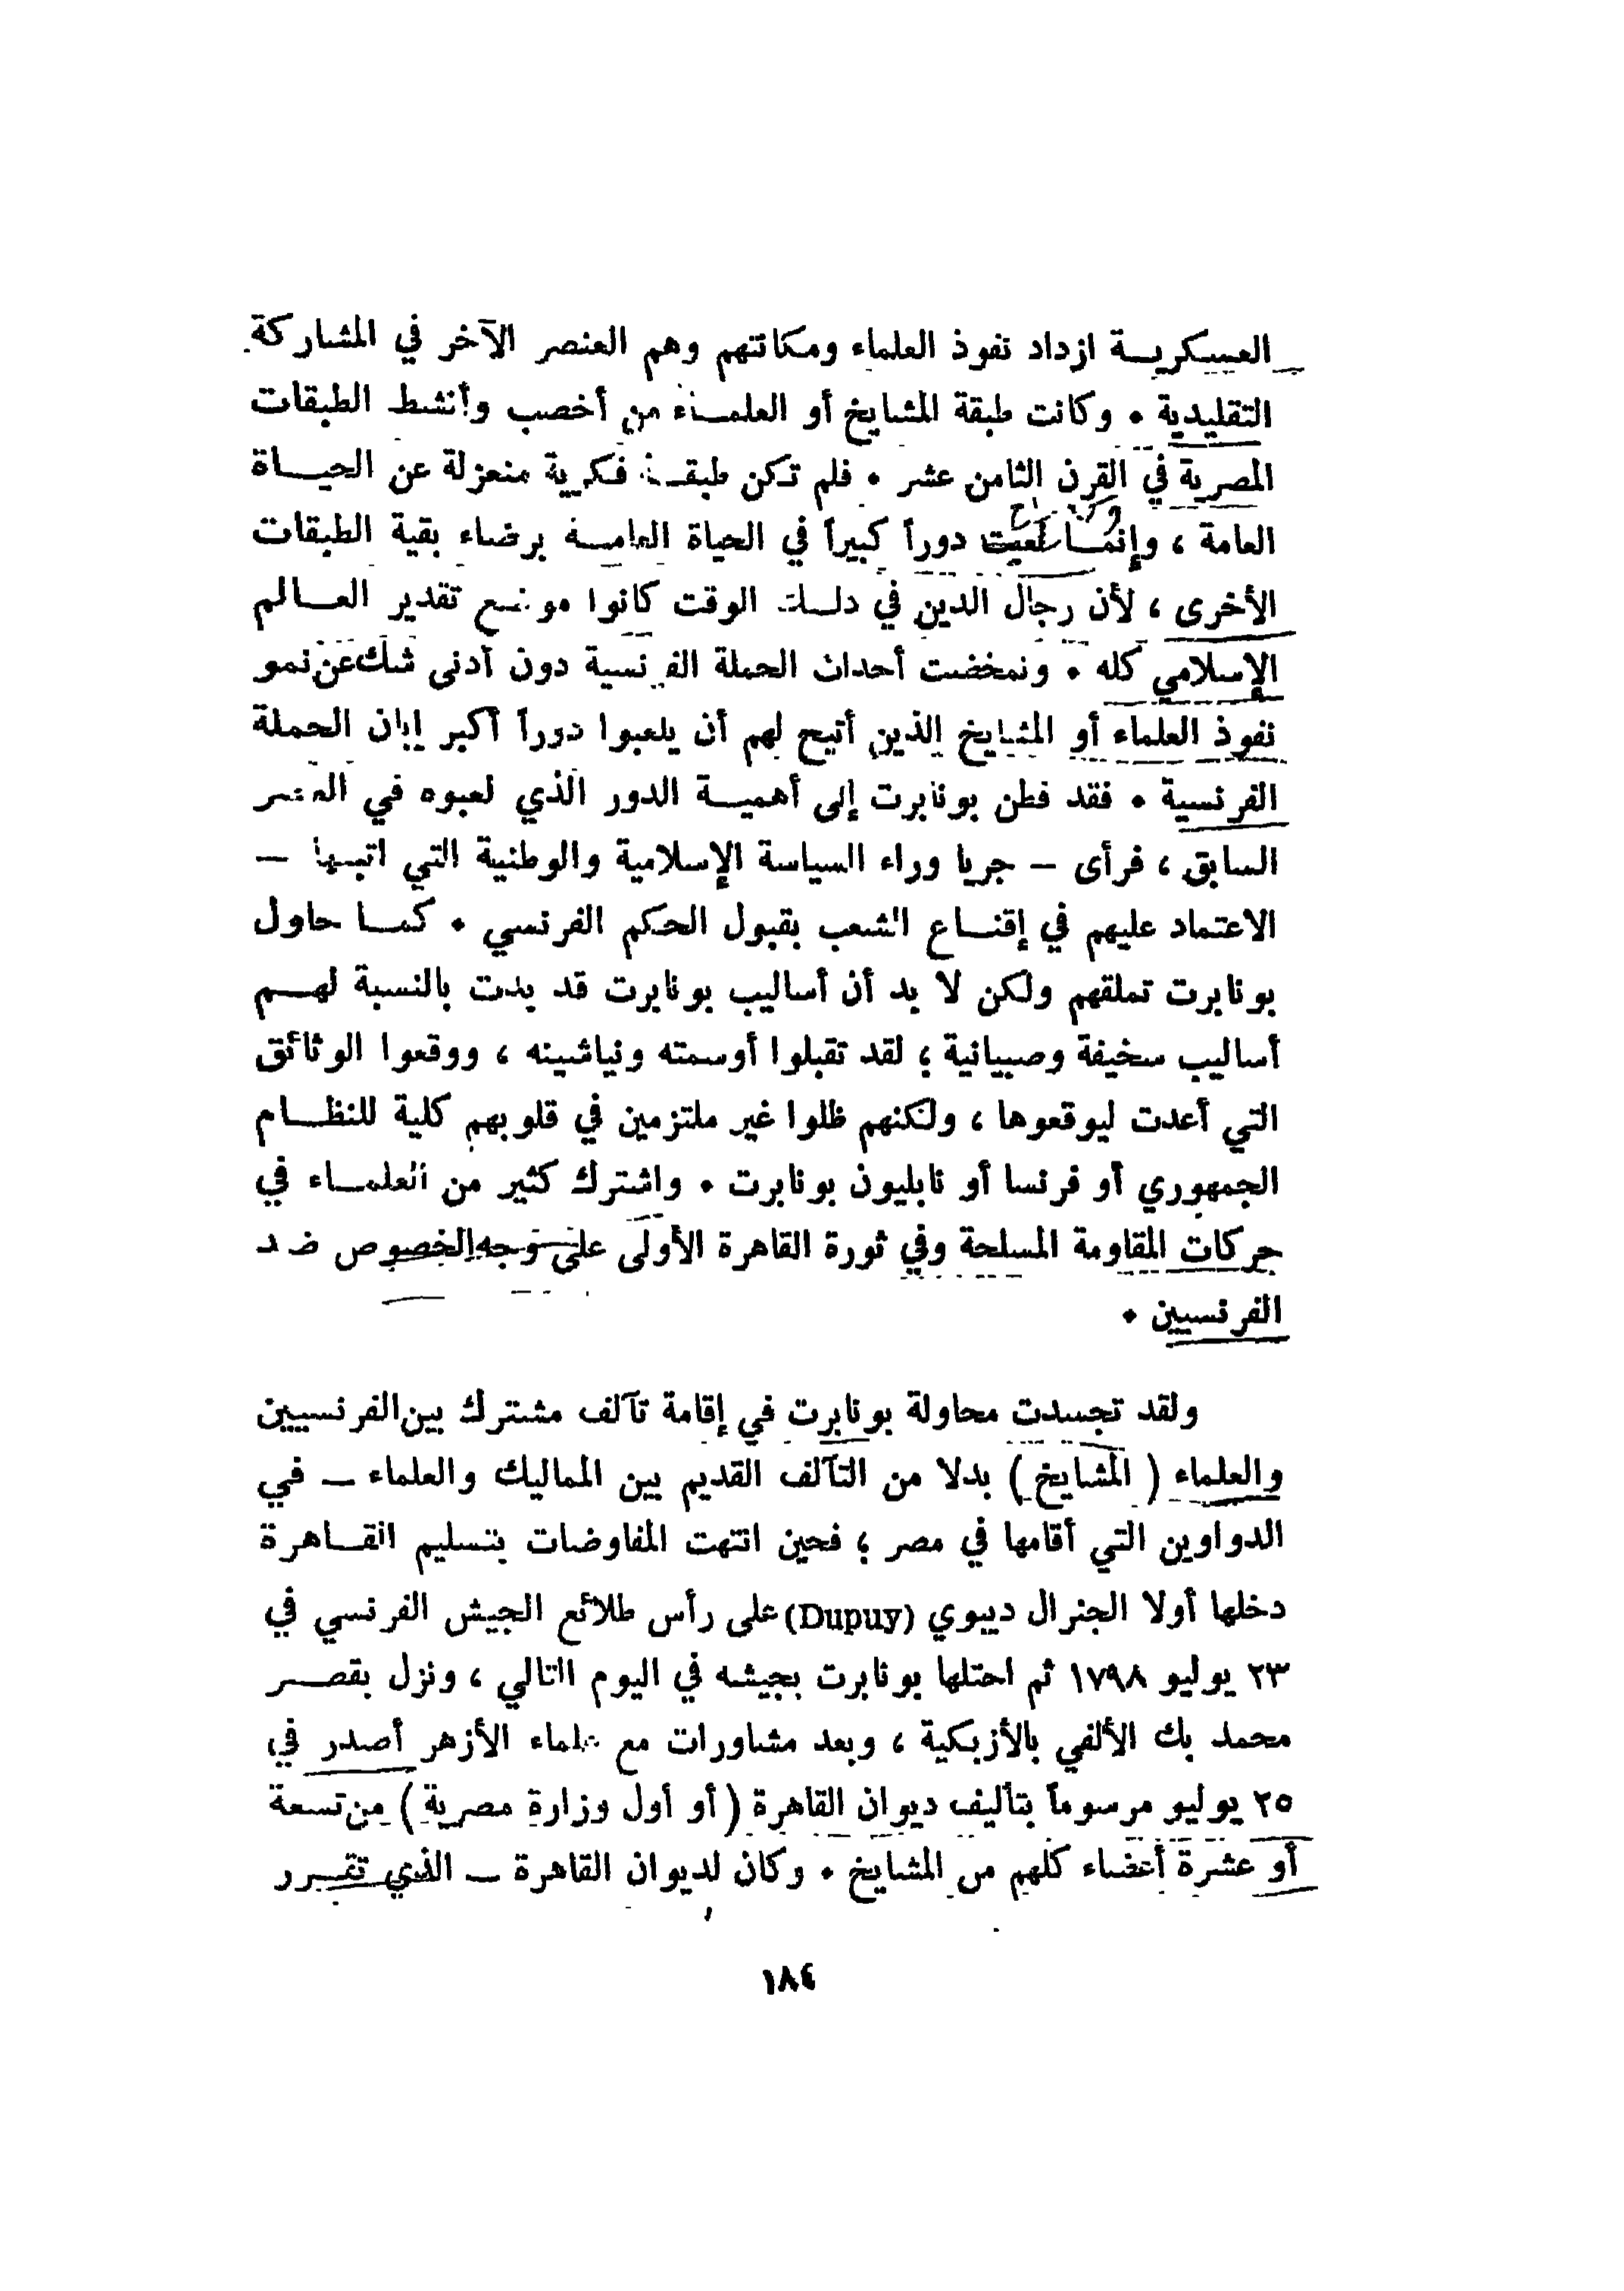 العسكريــة ازداد نفوذ العلماء ومكانتهم وهم العنصر الآخر في المشاركة
التقليدية . وكانت طبقة المشايخ أو العلمــاء من أخصب وأنشط الطبقات
المصرية في القرن الثامن عشر . فلم تكن طبقــة فكرية منعزلة عن الحيــاة
العامة ، وإنمــا لعبت دوراً كبيراً في الحياة العامــة برضاء بقية الطبقات
الأخرى ، لأن رجال الدين في ذلــك الوقت كانوا موضــع تقدير العــالم
الإسلامي كله . وتمخضت أحداث الحملة الفرنسية دون أدنى شك عن نمو
نفوذ العلماء أو المشايخ الذين أتيح لهم أن يلعبوا دوراً أكبر إبان الحملة
الفرنسية . فقد فطن بونابرت إلى أهميــة الدور الذي لعبوه في العصر
السابق ، فرأى – جريا وراء السياسة الإسلامية والوطنية التي اتبعها –
الاعتماد عليهم في إقنــاع الشعب بقبول الحكم الفرنسي . كمــا حاول
بونابرت تملقهم ولكن لا بد أن أساليب بونابرت قد بدت بالنسبة لهــم
أساليب سخيفة وصبيانية ؛ لقد تقبلوا أوسمته ونياشينه ، ووقعوا الوثائق
التي أعدت ليوقعوها ، ولكنهم ظلوا غير ملتزمين في قلوبهم كلية للنظــام
الجمهوري أو فرنسا أو نابليون بونابرت . واشترك كثير من العلمــاء في
حركات المقاومة المسلحة وفي ثورة القاهرة الأولى على وجه الخصوص ضد
الفرنسيين .
ولقد تجسدت محاولة بونابرت في إقامة تآلف مشترك بين الفرنسيين
والعلماء ( المشايخ ) بدلا من التآلف القديم بين المماليك والعلماء – في
الدواوين التي أقامها في مصر ؛ فحين انتهت المفاوضات بتسليم القــاهرة
دخلها أولا الجنرال ديبوي (Dupuy) على رأس طلائع الجيش الفرنسي في
٢٣ يوليو ١٧٩٨ ثم احتلها بونابرت بجيشه في اليوم التالي ، ونزل بقصــر
محمد بك الألفي بالأزبكية ، وبعد مشاورات مع علماء الأزهر أصدر في
٢٥ يوليو مرسوماً بتأليف ديوان القاهرة ( أو أول وزارة مصرية ) من تسعة
أو عشرة أعضاء كلهم من المشايخ . وكان لديوان القاهرة – الذي تقــرر
١٨٤